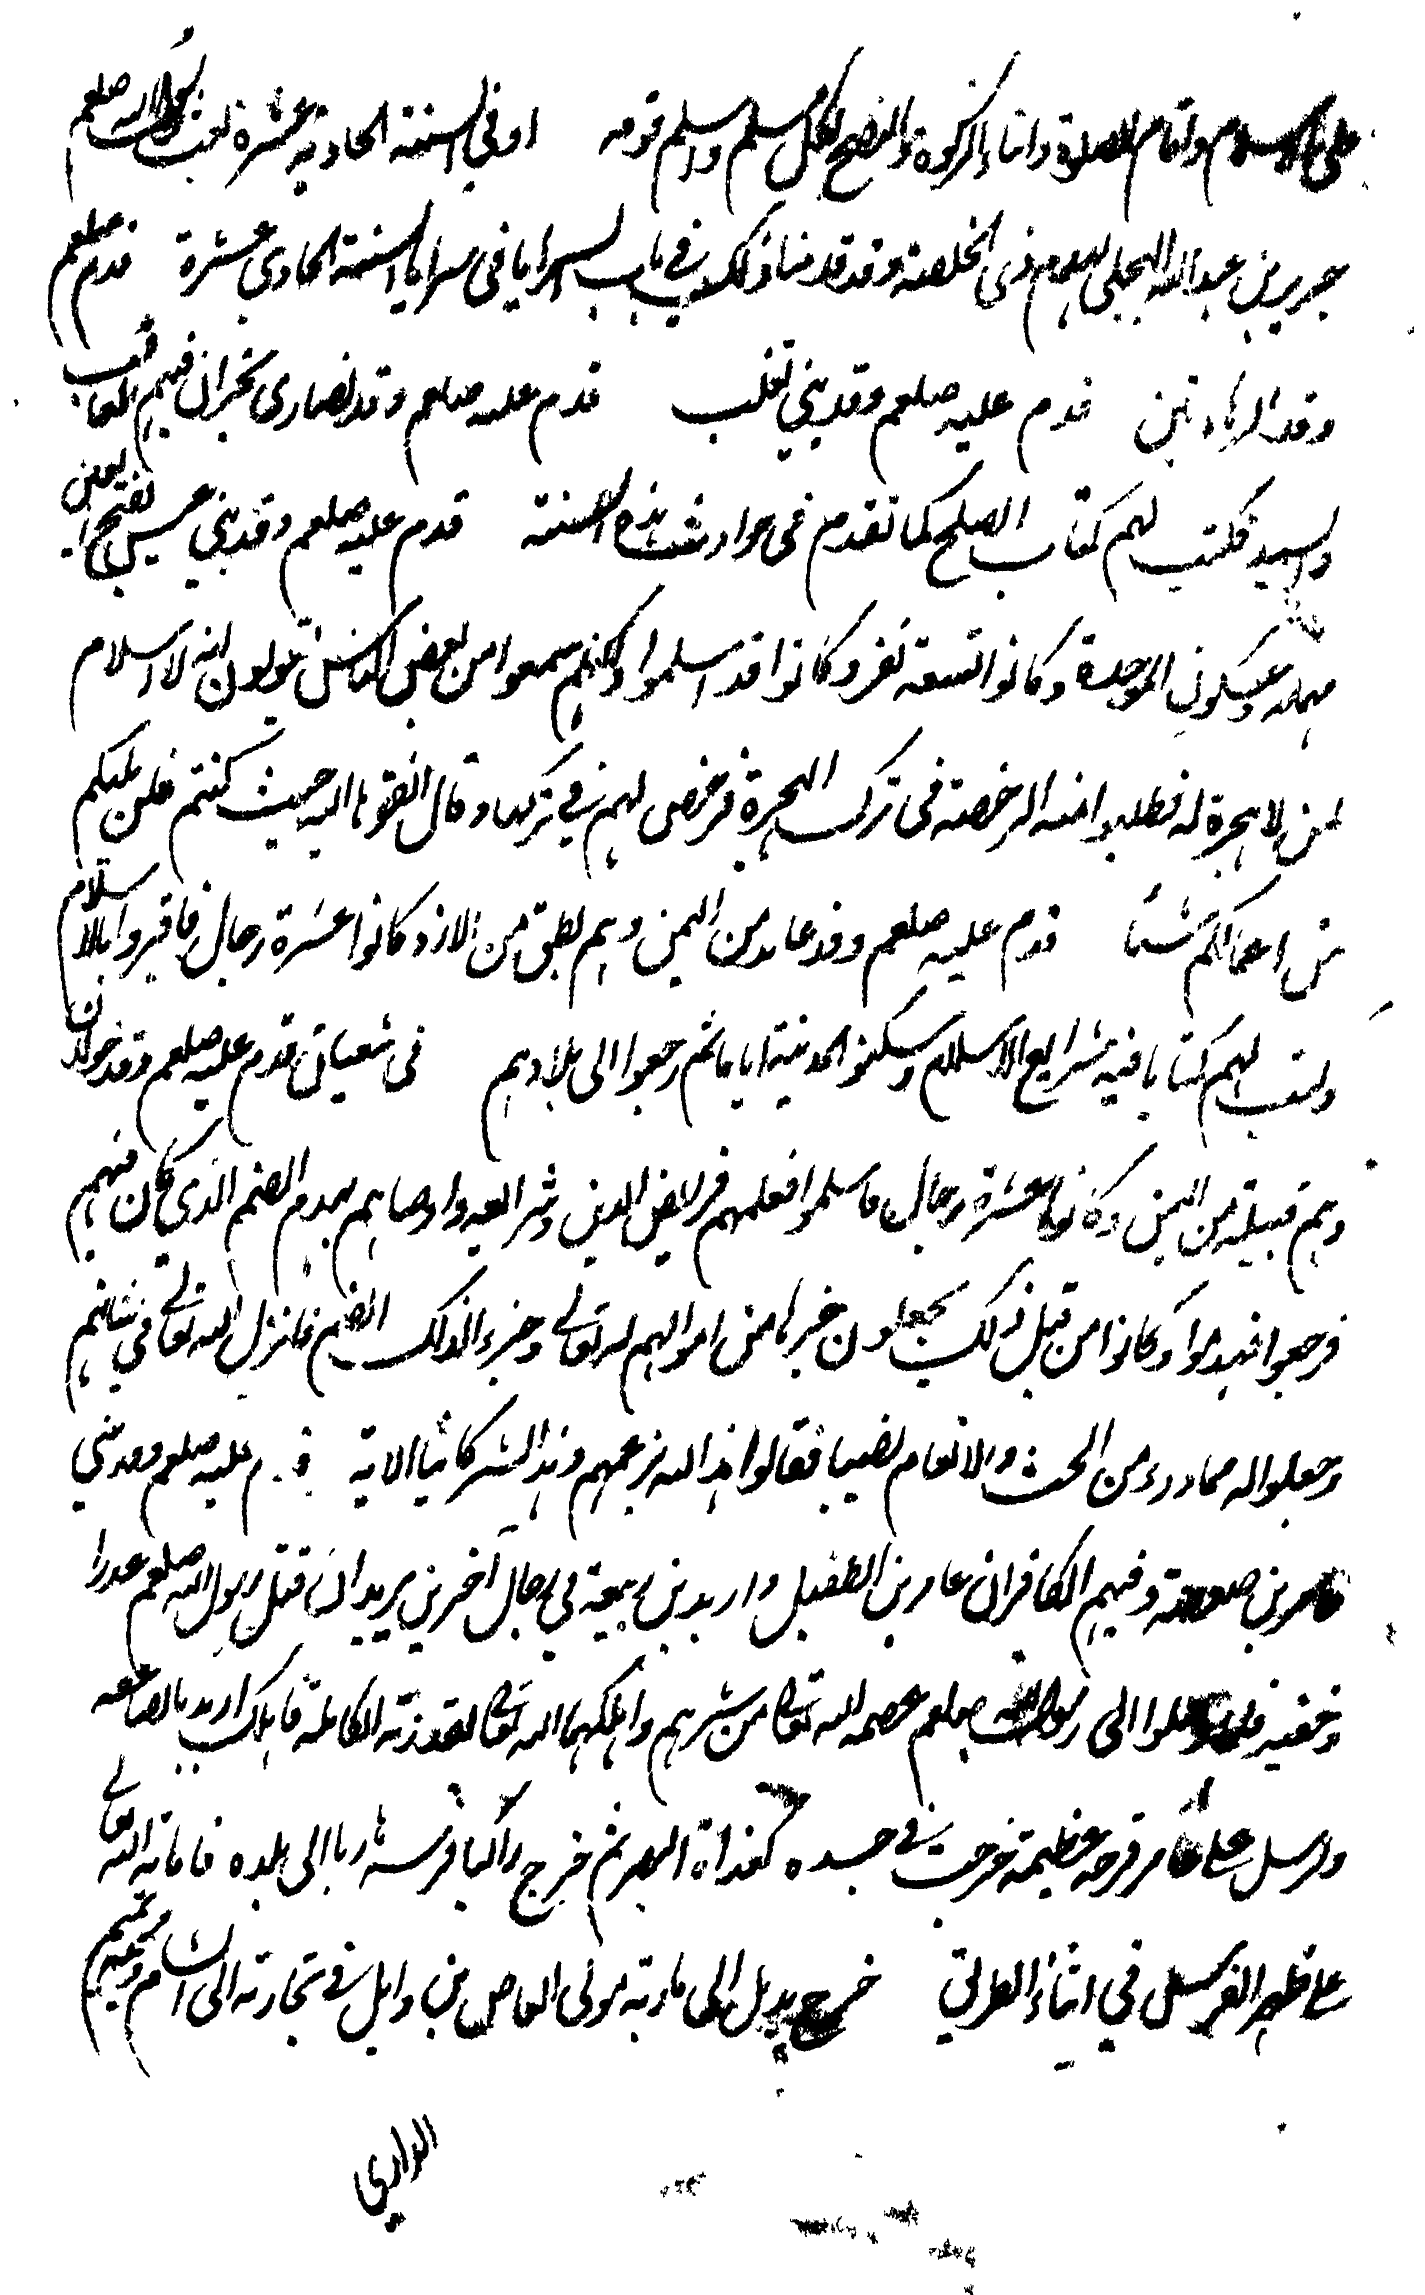 على الاسلام واقام الصلوة وايتاء الزكوة والنصح لكل مسلم واسلم قومه او في السنة الحادية عشرة بعث رسول الله صلعم
جرير بن عبدالله البجلي لهدم ذى الخلصة وقد قدمنا ذلك في باب السرايا في سرايا السنة الحادي عشرة قدم عليه صلعم
وفد الرهاويين قدم عليه صلعم وفد بني تغلب قدم عليه صلعم وفد نصارى نجران فيهم العاقب
والسيد فكتب لهم كتاب الصلح كما تقدم في حوادث هذه السنة قدم عليه صلعم وفد بني عبس بفتح العين
مهملة وسكون الموحدة وكانوا تسعة نفر وكانوا قد اسلموا ولكنهم سمعوا من بعض الناس يقولون انه لا اسلام
لمن لا هجرة له فطلبوا منه الرخصة في ترك الهجرة فرخص لهم في تركها وقال اتقوا الله حيث كنتم فلن يلتكم
من اعمالكم شيئا قدم عليه صلعم وفد غامد من اليمن وهم بطن من الازد كانوا عشرة رجال فاقروا بالاسلام
وكتب لهم كتابا فيه شرايع الاسلام وسكنوا المدينة اياما ثم رجعوا الى بلادهم في شعبان قدم عليه صلعم وفد خولان
وهم قبيلة من اليمن وكانوا عشرة رجال فاسلموا فعلمهم فرايض الدين وشرايعه واوصاهم بهدم الصنم الذي كان فيهم
فرجعوا فهدموا وكانوا من قبل ذلك يجعلون جزءا من اموالهم لله تعالى وجزءا لذلك الصنم فانزل الله تعالى في شانهم
وجعلوا لله مما ذرء من الحرث والانعام نصيبا فقالوا هذا لله بزعمهم وهذا لشركائنا الاية قدم عليه صلعم وفد بني
عامر بن صعصعة وفيهم الكافران عامر بن الطفيل واربد بن ربيعة في رجال آخرين يريدان قتل رسول الله صلعم غدرا
وخفية فلما وصلوا الى رسول الله صلعم عصمه الله تعالى من شرهم واهلكهما الله تعالى بقدرته الكاملة فاهلك اربد بالصاعقة
وارسل على عامر قرحة عظيمة خرجت في جسده كغداة البعير ثم خرج راكبا فرسه هاربا الى بلده فاماته الله تعالى
على ظهر الفرس في اثناء الطريق خرج بديل بن ابي مارية مولى العاص بن وايل في تجارته الى الشام ومعه تميم
الداري